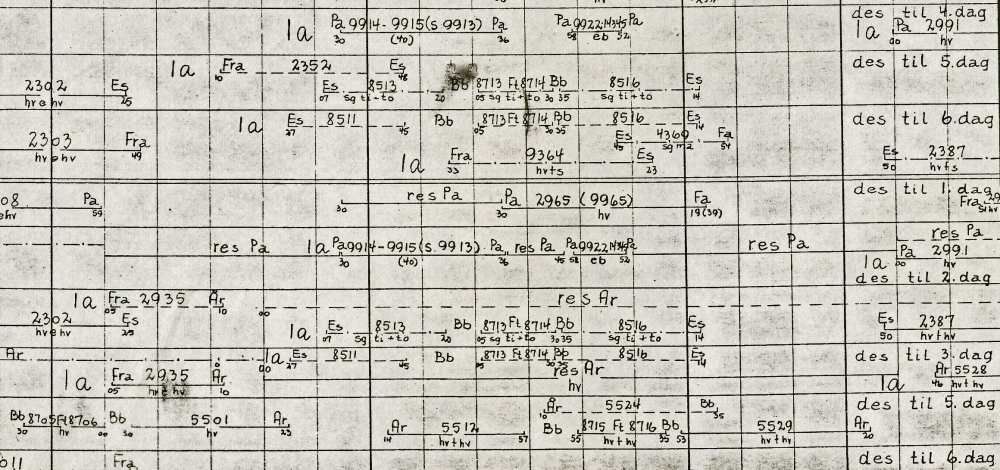 des til 4. dag
1a Pa 9914-9915 (s. 9913) Pa Pa 9922 Pa 1a Pa 2991
30 (40) 36 58 eb 52 00 hv
1a Fra 2352 Es des til 5. dag
10 48
2302 Es Es 8513 Bb 8713 Ft 8714 Bb 8516 Es
hv e hv 25 07 sg ti+to 20 05 sg ti+to 30 35 sg ti+to 14
1a Es 8511 Bb 8713 Ft 8714 Bb 8516 Es des til 6. dag
27 45 05 30 35 14
2303 Fra Es 4360 Fa
hv e hv 49 45 sg ma 54
1a Fra 9364 Es Es 2387
33 hv ts 23 50 hv ts
08 Pa res Pa Pa 2965 (9965) Fa des til 1. dag
ehv 59 30 30 hv 19 (39) Fra 29
res Pa 1a Pa 9914-9915 (s. 9913) Pa res Pa Pa 9922 Pa res Pa res Pa
30 (40) 36 45 58 eb 52
1a Pa 2991
00 hv
des til 2. dag
1a Fra 2935 Ar res Ar
05 10 00
2302 Es 1a Es 8513 Bb 8713 Ft 8714 Bb 8516 Es Es 2387
hv e hv 25 07 sg ti+to 20 05 sg ti+to 30 35 sg ti+to 14 50 hv+hv
Ar 1a Es 8511 Bb 8713 Ft 8714 Bb 8516 Es des til 3. dag
00 27 45 05 14
1a Fra 2935 Ar res Ar 1a Ar 5528
05 hv e hv 10 hv 46 hv+hv
Ar 5524 Bb des til 5. dag
10 35
Bb 8705 Ft 8706 Bb 5501 Ar Ar 5512 Bb 8715 Ft 8716 Bb 5529 Ar
30 hv 00 30 hv 23 14 hv+hv 57 55 hv+hv 35 53 hv+hv 20
011 Fra des til 6. dag